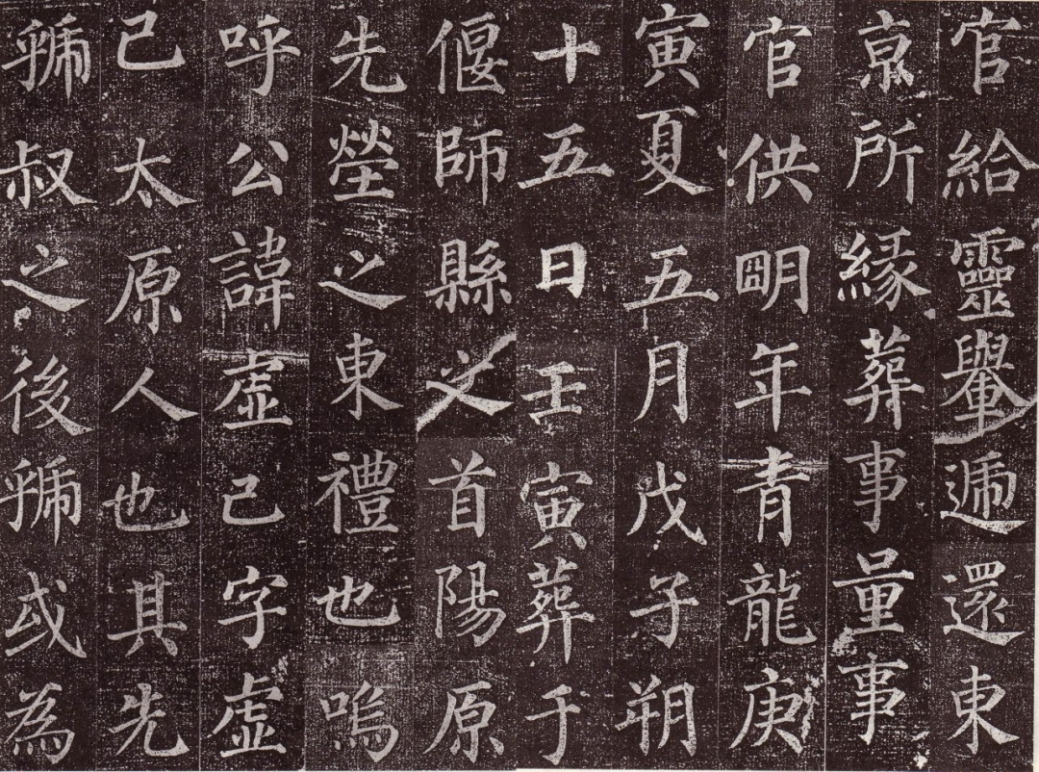 官給靈轝遞還東
京所緣葬事量事
官供明年青龍庚
寅夏五月戊子朔
十五日壬寅葬于
偃師縣之首陽原
先塋之東禮也嗚
呼公諱虚己字虚
己太原人也其先
虢叔之後虢或為